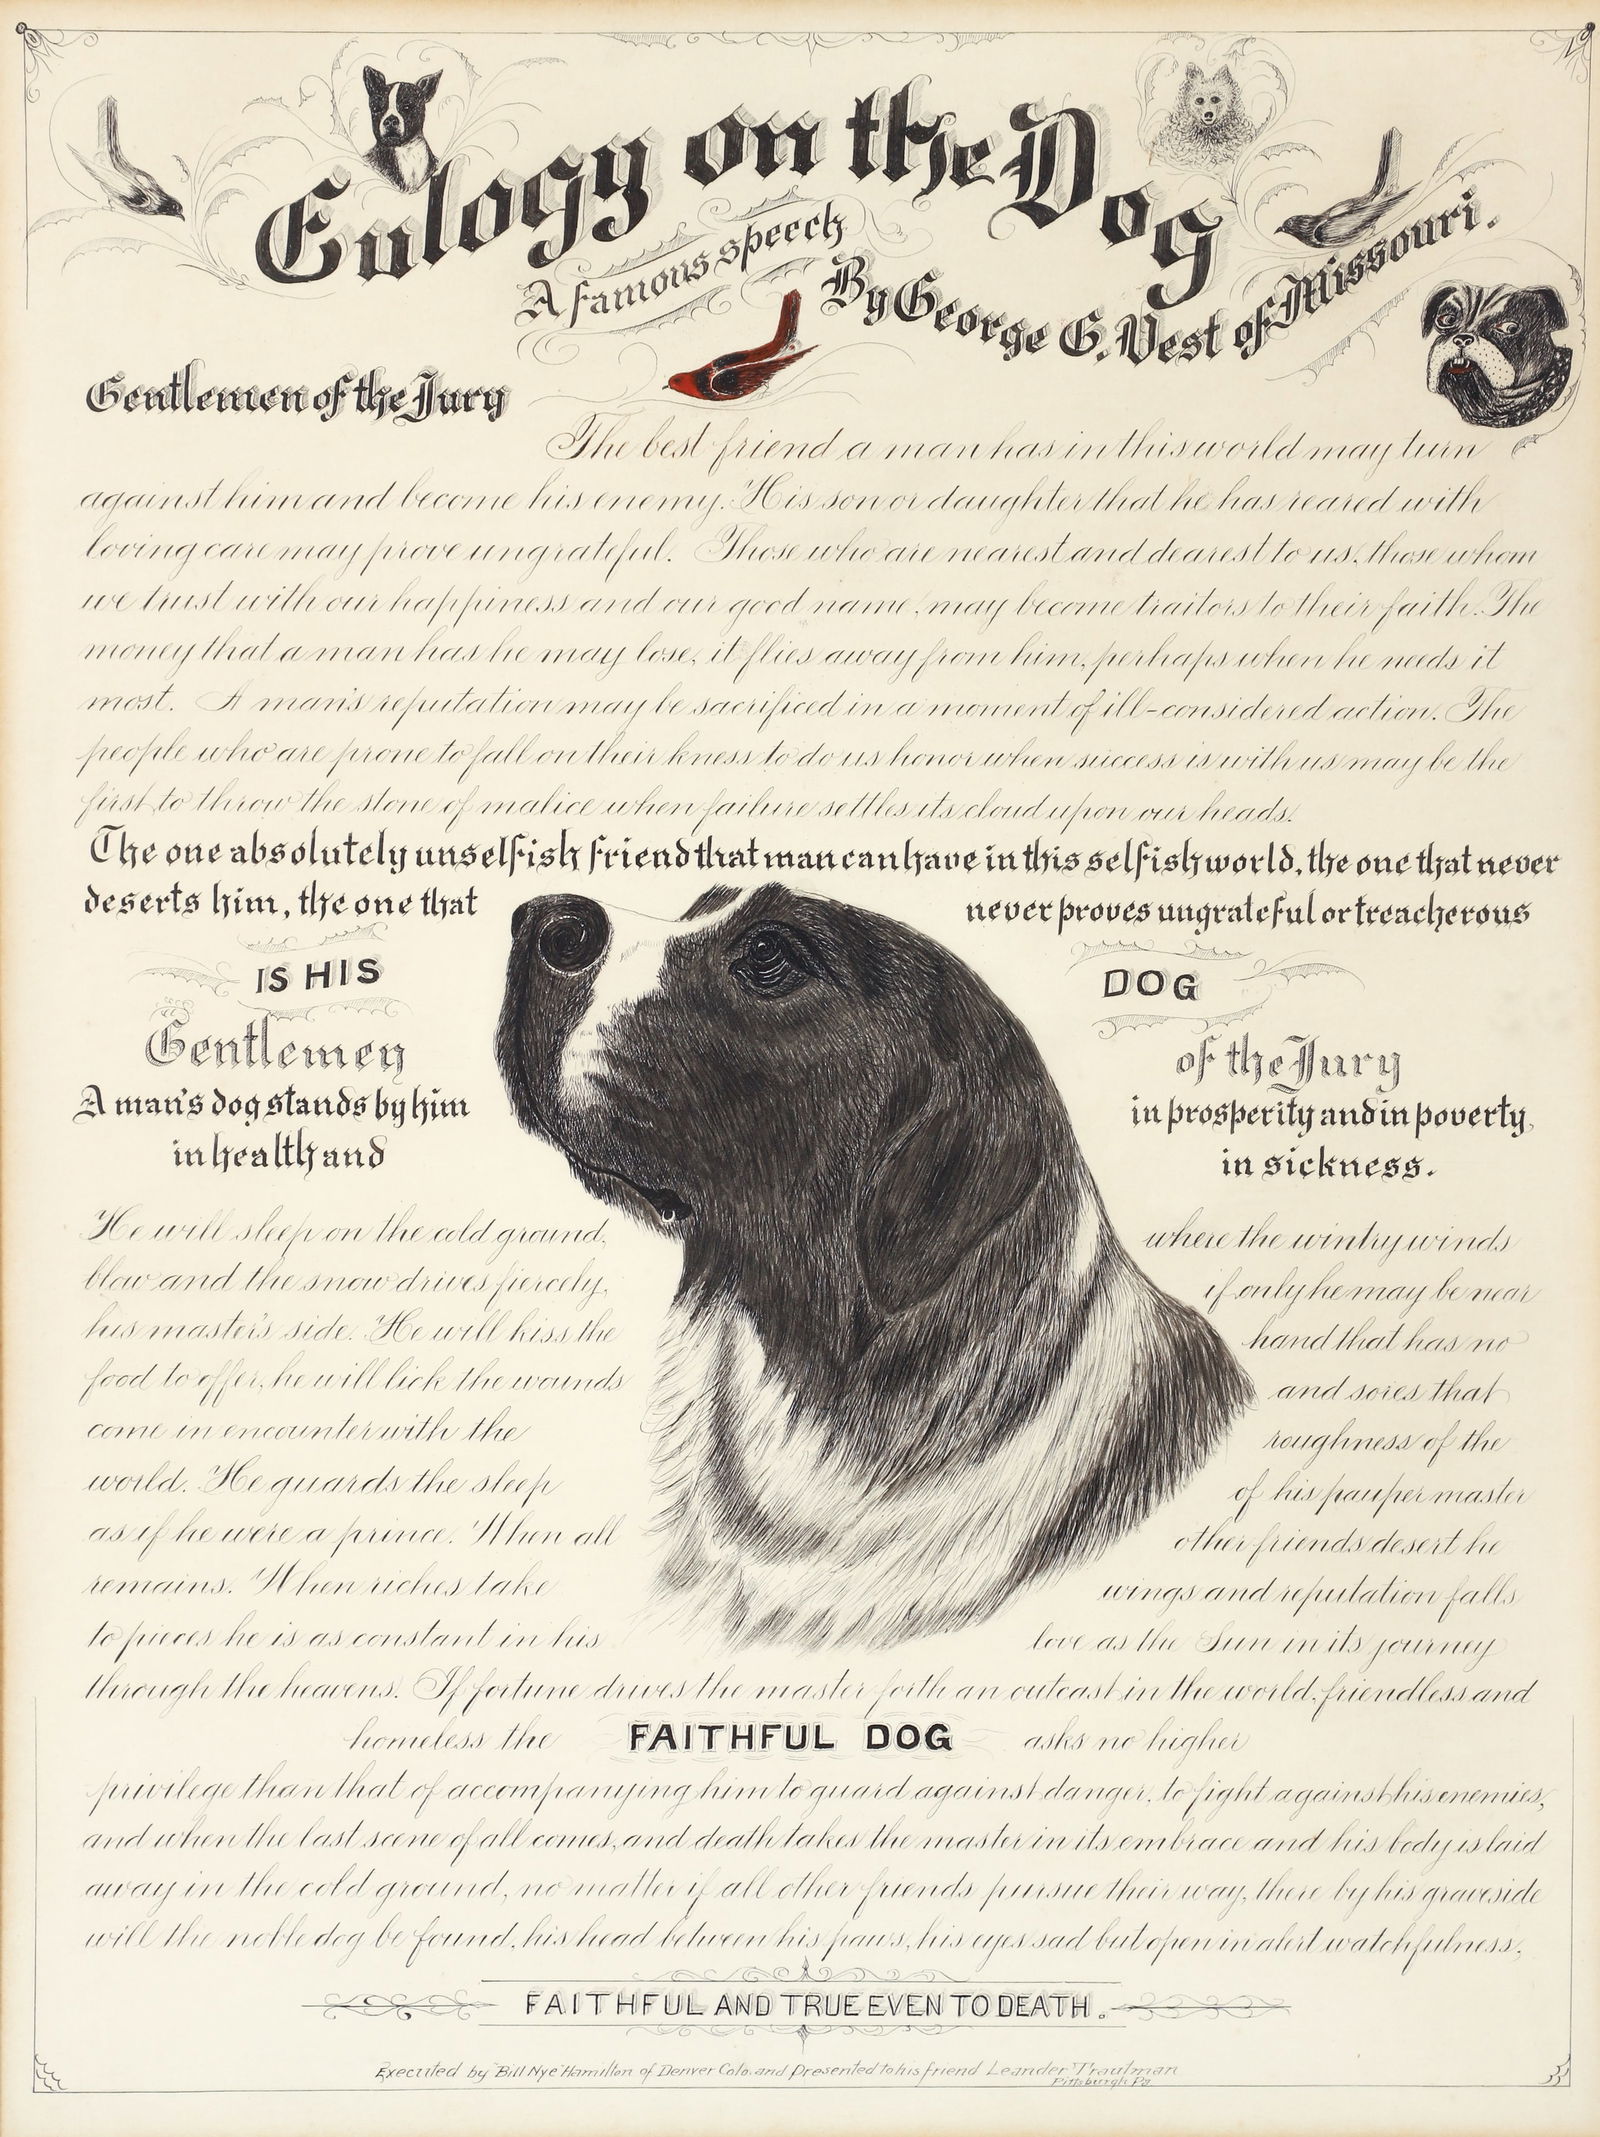 Eulogy on the Dog
A famous speech
By George G. Vest of Missouri.
Gentlemen of the Jury
The best friend a man has in this world may turn
against him and become his enemy. His son or daughter that he has reared with
loving care may prove ungrateful. Those who are nearest and dearest to us, those whom
we trust with our happiness and our good name, may become traitors to their faith. The
money that a man has he may lose, it flies away from him, perhaps when he needs it
most. A man's reputation may be sacrificed in a moment of ill-considered action. The
people who are prone to fall on their kness to do us honor when success is with us may be the
first to throw the stone of malice when failure settles its cloud upon our heads.
The one absolutely unselfish friend that man can have in this selfish world, the one that never
deserts him, the one that never proves ungrateful or treacherous
IS HIS DOG
Gentlemen of the Jury
A man's dog stands by him in prosperity and in poverty,
in health and in sickness.
He will sleep on the cold ground, where the wintry winds
blow and the snow drives fiercely, if only he may be near
his master's side. He will kiss the hand that has no
food to offer, he will lick the wounds and sores that
come in encounter with the roughness of the
world. He guards the sleep of his pauper master
as if he were a prince. When all other friends desert he
remains. When riches take wings and reputation falls
to pieces he is as constant in his love as the Sun in its journey
through the heavens. If fortune drives the master forth an outcast in the world, friendless and
homeless the FAITHFUL DOG asks no higher
privilege than that of accompanying him to guard against danger, to fight against his enemies,
and when the last scene of all comes, and death takes the master in its embrace and his body is laid
away in the cold ground, no matter if all other friends pursue their way, there by his graveside
will the noble dog be found, his head between his paws, his eyes sad but open in alert watchfulness,
FAITHFUL AND TRUE EVEN TO DEATH.
Executed by "Bill Nye" Hamilton of Denver Colo. and Presented to his friend Leander Trautman
Pittsburgh Pa